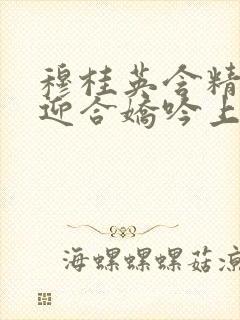 穆桂英含精
迎合嬌吟上
海螺螺螺菇涼